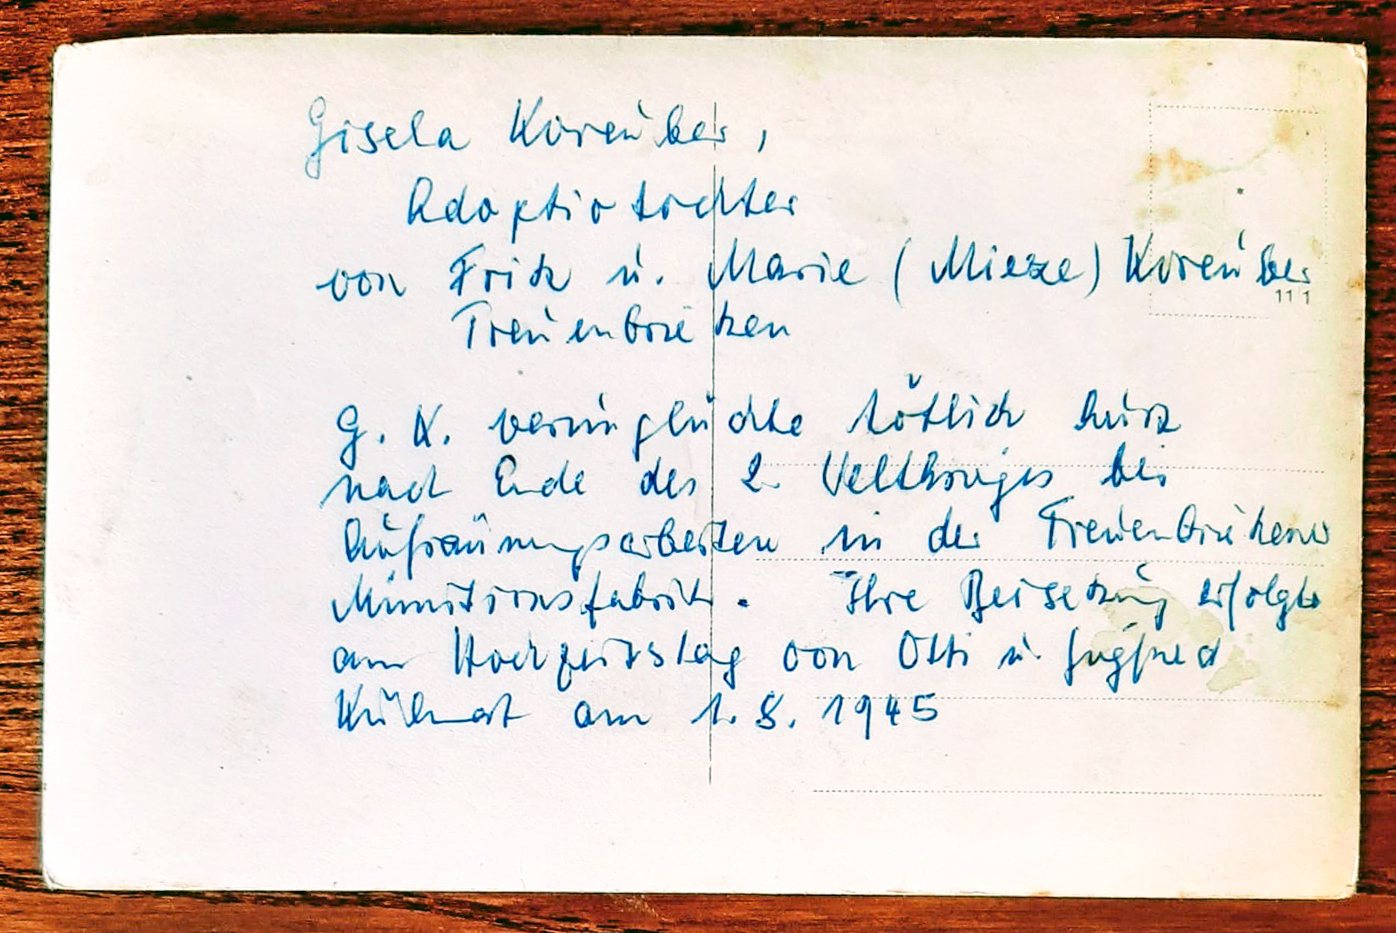 Gisela Koreuber,
Adoptiotochter
von Fritz u. Marie (Mieze) Koreuber
111
Treuenbrietzen
G. K. verunglückte tötlich kurz
nach Ende des 2. Weltkrieges bei
Aufräumungsarbeiten in der Treuenbrietzener
Munitionsfabrik. Ihre Beisetzung erfolgte
am Hochzeitstag von Otti u.
am 1.8.1945